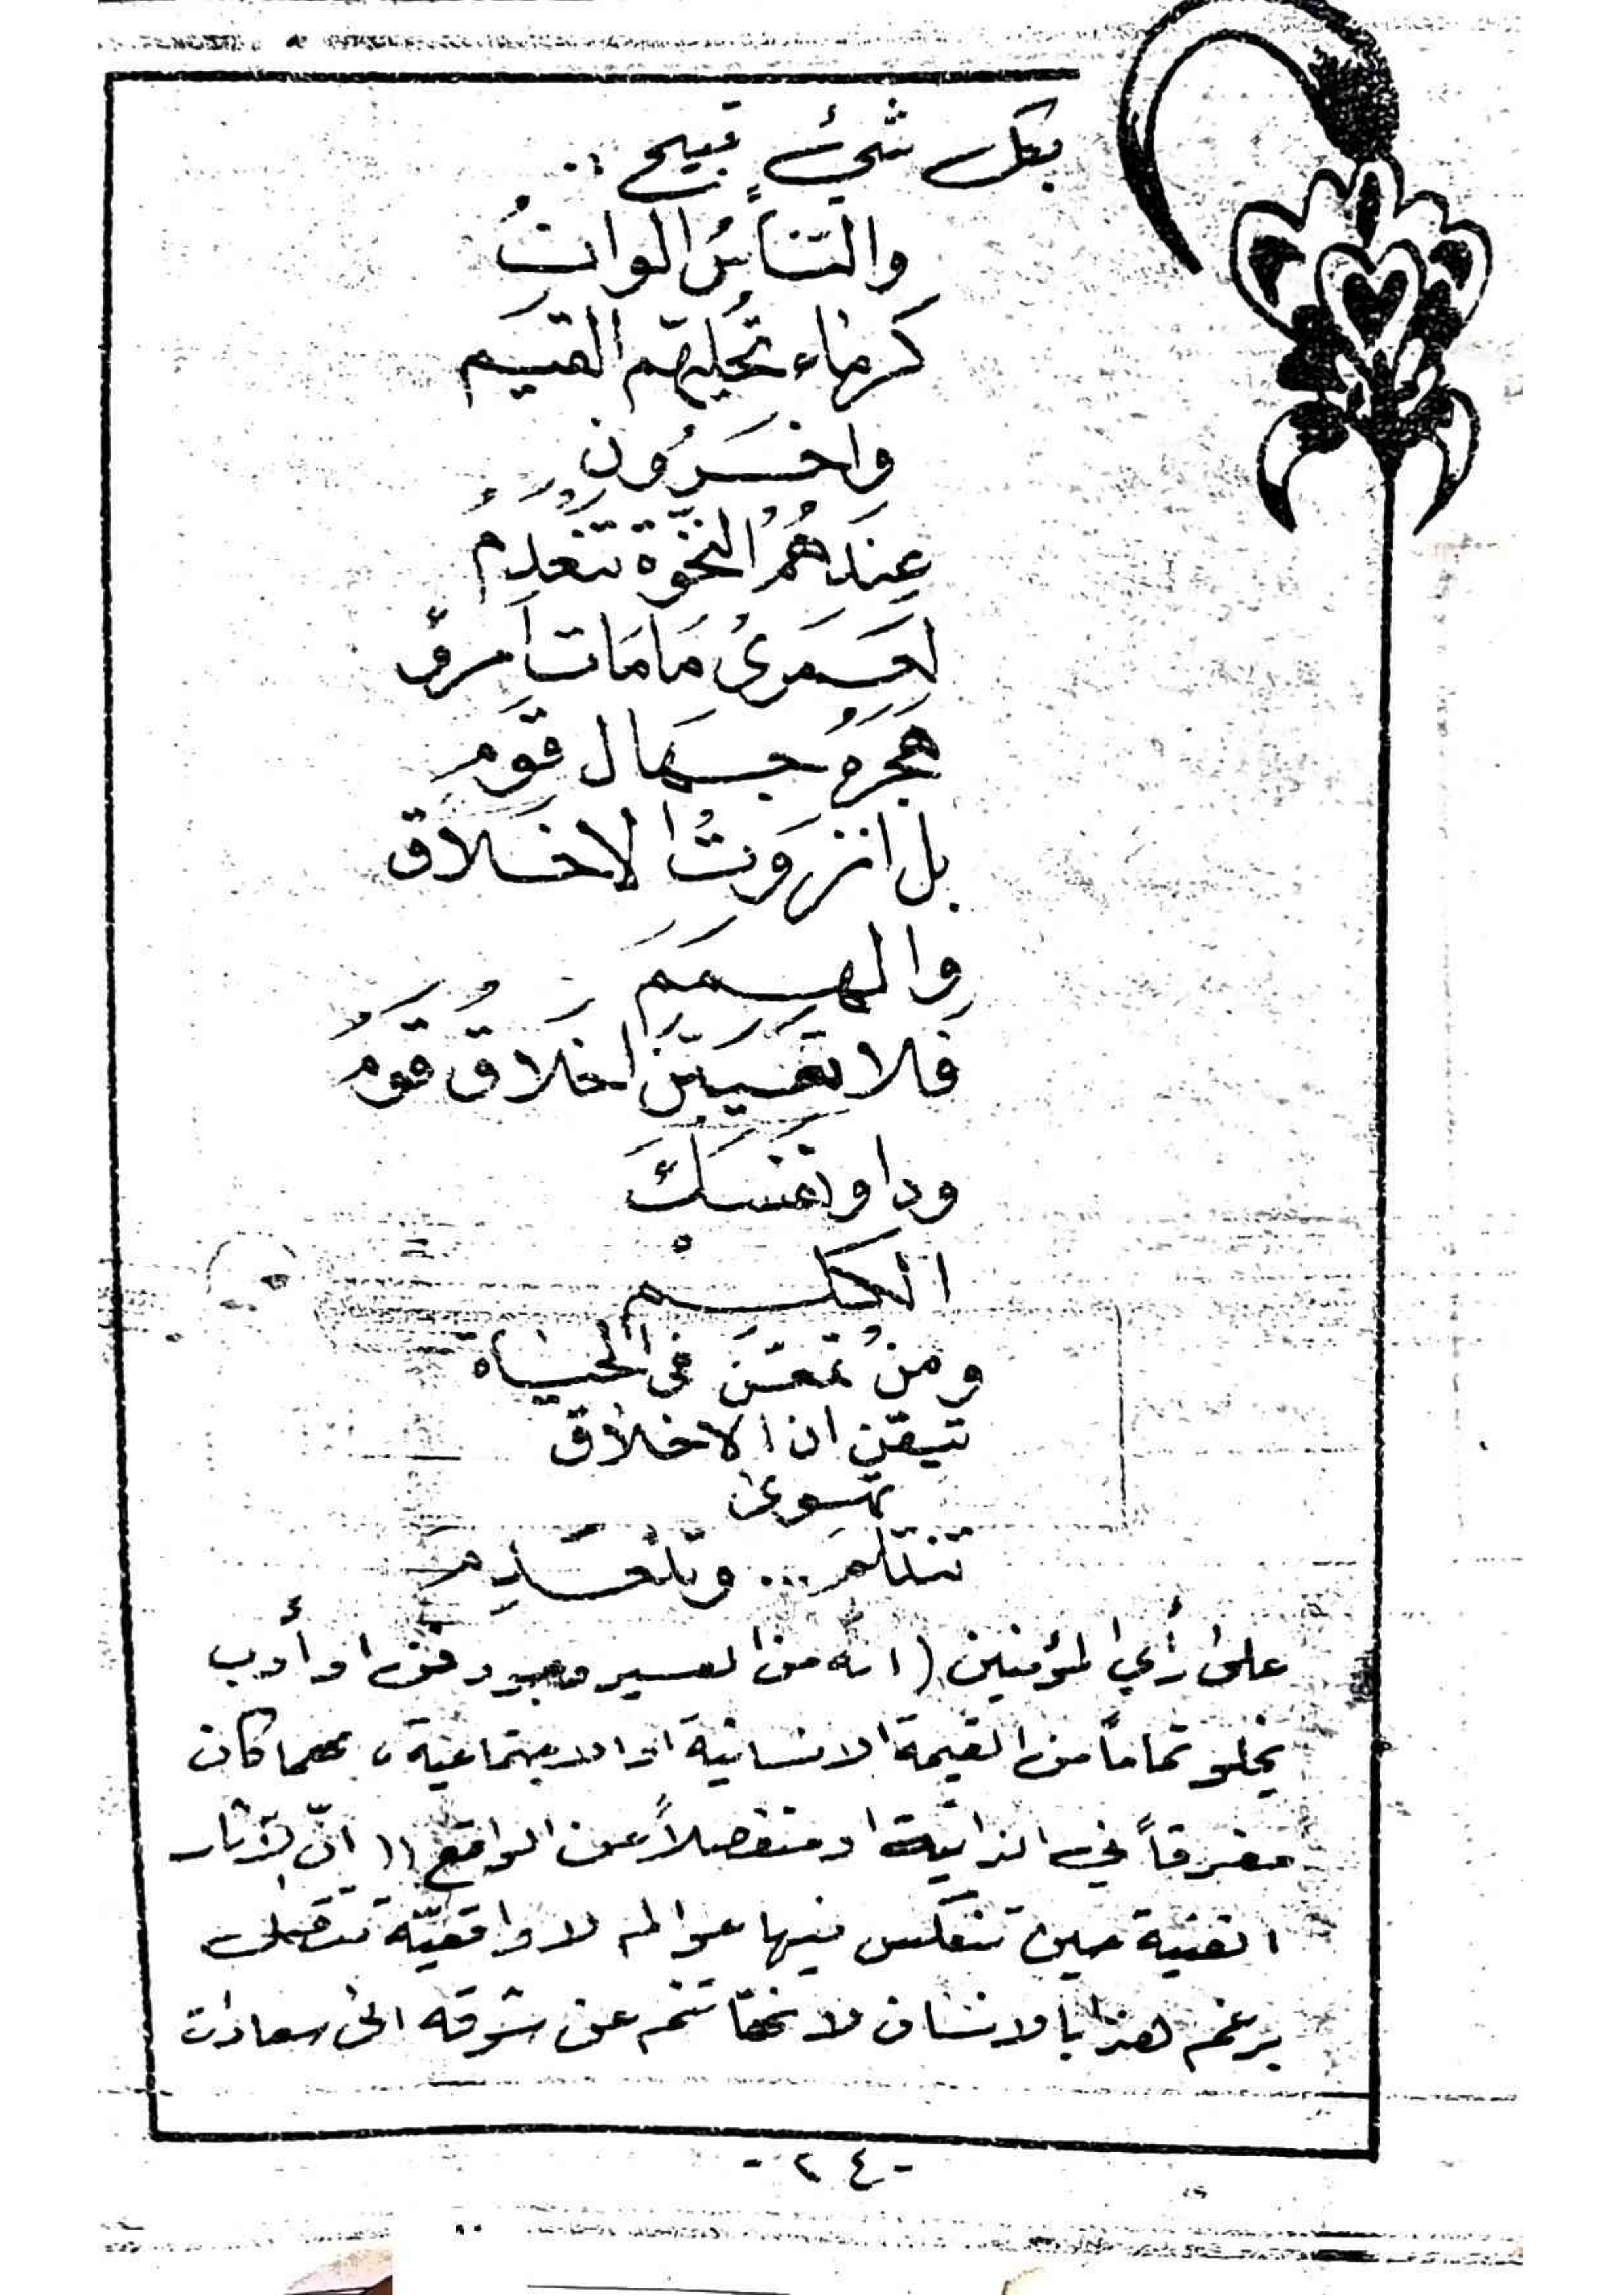 بكل شيءٍ قبيح ..
والنّاسُ الوانُ
كرماء تُجلّهم القيم
واخرون
عندهمُ النخوة تنعدمُ
لعمري مامات امرؤ
هجره جهال قوم
بل انزوت الاخلاق
والهمم
فلا تعيبنّ اخلاق قوم
وداو نفسك
الكلم
ومن تمعّن في الحياة
تيقن ان الاخلاق
تهوى
تنثلم ... وتنعدم
على رأي المؤمنين (انه من العسير وجود فن او أدب
يخلو تماماً من القيمة الانسانية او الاجتماعية، مهما كان
مغرقاً في الذاتية او منفصلاً عن الواقع (( انّ الآثار
الفنية حين تنعكس فيها عوالم لا واقعيّة تتصل
برغم هذا بالانسان لانها تنم عن شوقه الى سعادات
- ٢٤ -